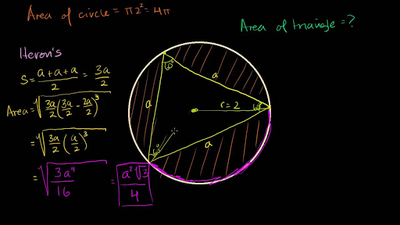 Area of circle = π2² = 4π
Area of triangle = ?
Heron's
S = a+a+a/2 = 3a/2
Area = √(3a/2 (3a/2 - 2a/2)³)
= √(3a/2 (a/2)³)
= √(3a⁴/16) = a²√3/4
60°
a
a
r = 2
60°
a
60°